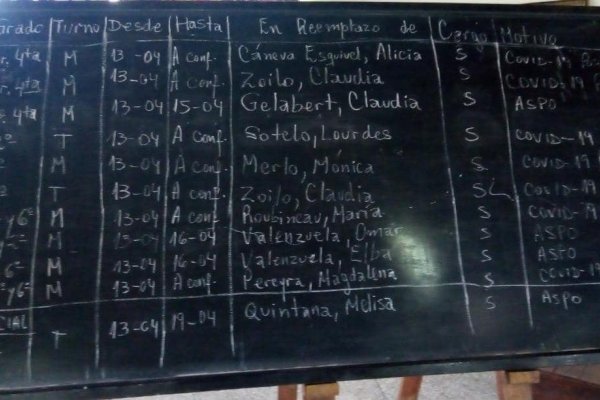 Grado Turno Desde Hasta En Reemplazo de Cargo Motivo
4ta M 13-04 A conf. Cáneva Esquivel, Alicia S Covid-19
4ta M 13-04 A conf. Zoilo, Claudia S Covid-19
4ta M 13-04 15-04 Gelabert, Claudia S ASPO
T 13-04 A conf. Sotelo, Lourdes S COVID-19
M 13-04 A conf. Merlo, Mónica S COVID-19
T 13-04 A conf. Zoilo, Claudia S Covid-19
y 6º M 13-04 A conf. María S COVID-19
M 13-04 16-04 Valenzuela, Omar S ASPO
6º M 13-04 16-04 Valenzuela, Elba S ASPO
y 6º M 13-04 A conf. Pereyra, Magdalena S COVID-19
CIAL T 13-04 19-04 Quintana, Melisa S ASPO